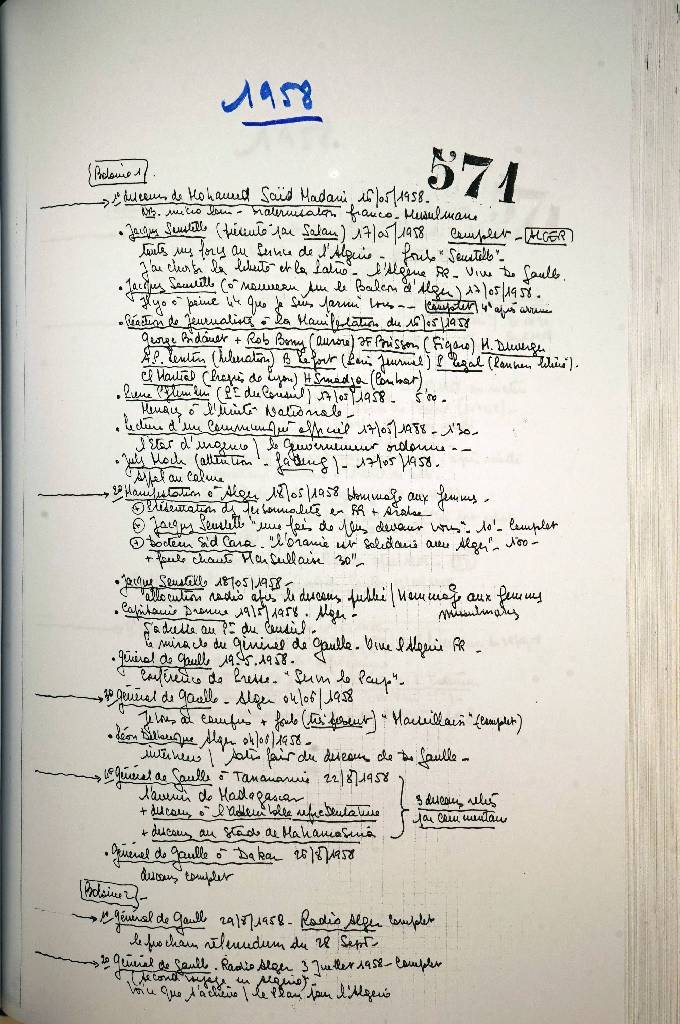 1958
571
Bobine 1.
1° discours de Mohamed Saïd Madani 16/05/1958.
micro - fraternisation franco-Musulmane
• Jacques Soustelle (présenté par Salan) 17/05/1958 Complet - ALGER
toutes mes forces au Service de l'Algérie - foule "Soustelle".
J'ai choisi la liberté et la Patrie - l'Algérie FR - Vive De Gaulle.
• Jacques Soustelle (à nouveau sur le Balcon d'Alger) 17/05/1958.
Il y a à peine 4h que je suis parmi vous -- Complet 4h après arrivée
• Réaction de Journalistes à la Manifestation du 16/05/1958
George Bidault + Rob Bony (aurore) JF Brisson (Figaro) M. Duverger
(liberation) B Lefort (Paris Journal) P Legal (Parisien libéré).
Cl Martial (Progrès de Lyon) H Smadja (Combat)
• Pierre Pflimlin (Pt du Conseil) 17/05/1958 - 5'00
Menace à l'Unité Nationale -
• Lecture d'un Communiqué officiel 17/05/1958 - 1'30 -
l'Etat d'urgence / le Gouvernement ordonne --
• Jules Moch (attention - fading) - 17/05/1958.
appel au Calme
2° Manifestation à Alger 18/05/1958 Hommage aux femmes -
Présentation de personnalités en FR + arabe
Jacques Soustelle "une fois de plus devant vous" - 10' - Complet
Docteur Sid Cara - "l'Oranie est solidaire avec Alger" - 1'00 -
+ foule chante Marseillaise 30" -
• Jacques Soustelle 18/05/1958 -
allocution radio après le discours public / Hommage aux femmes
musulmanes
• Capitaine Dronne 19/5/1958 - Alger -
S'adresse au Pt du Conseil -
le miracle du Général de Gaulle - Vive l'Algérie FR -
• Général de Gaulle 19.5.1958.
Conférence de Presse - "Servir le Pays" -
3° Général de Gaulle - Alger 04/06/1958
Je vous ai compris + foule (très présent) "Marseillaise" (Complet)
• Léon Delbecque Alger 04/06/1958 -
interview / Satisfait du discours de De Gaulle -
Général de Gaulle à Tananarive 22/8/1958
l'avenir de Madagascar
+ discours à l'assemblée représentative
+ discours au Stade de Mahamasina
3 discours reliés
par commentaire
• Général de Gaulle à Dakar 26/8/1958
discours complet
Bobine 2 -
1° Général de Gaulle 29/8/1958 - Radio Alger Complet
le prochain referendum du 28 Sept -
2° Général de Gaulle - Radio Alger 3 Juillet 1958 - Complet
(second voyage en Algérie)
Voici que s'achève / le Plan pour l'Algérie